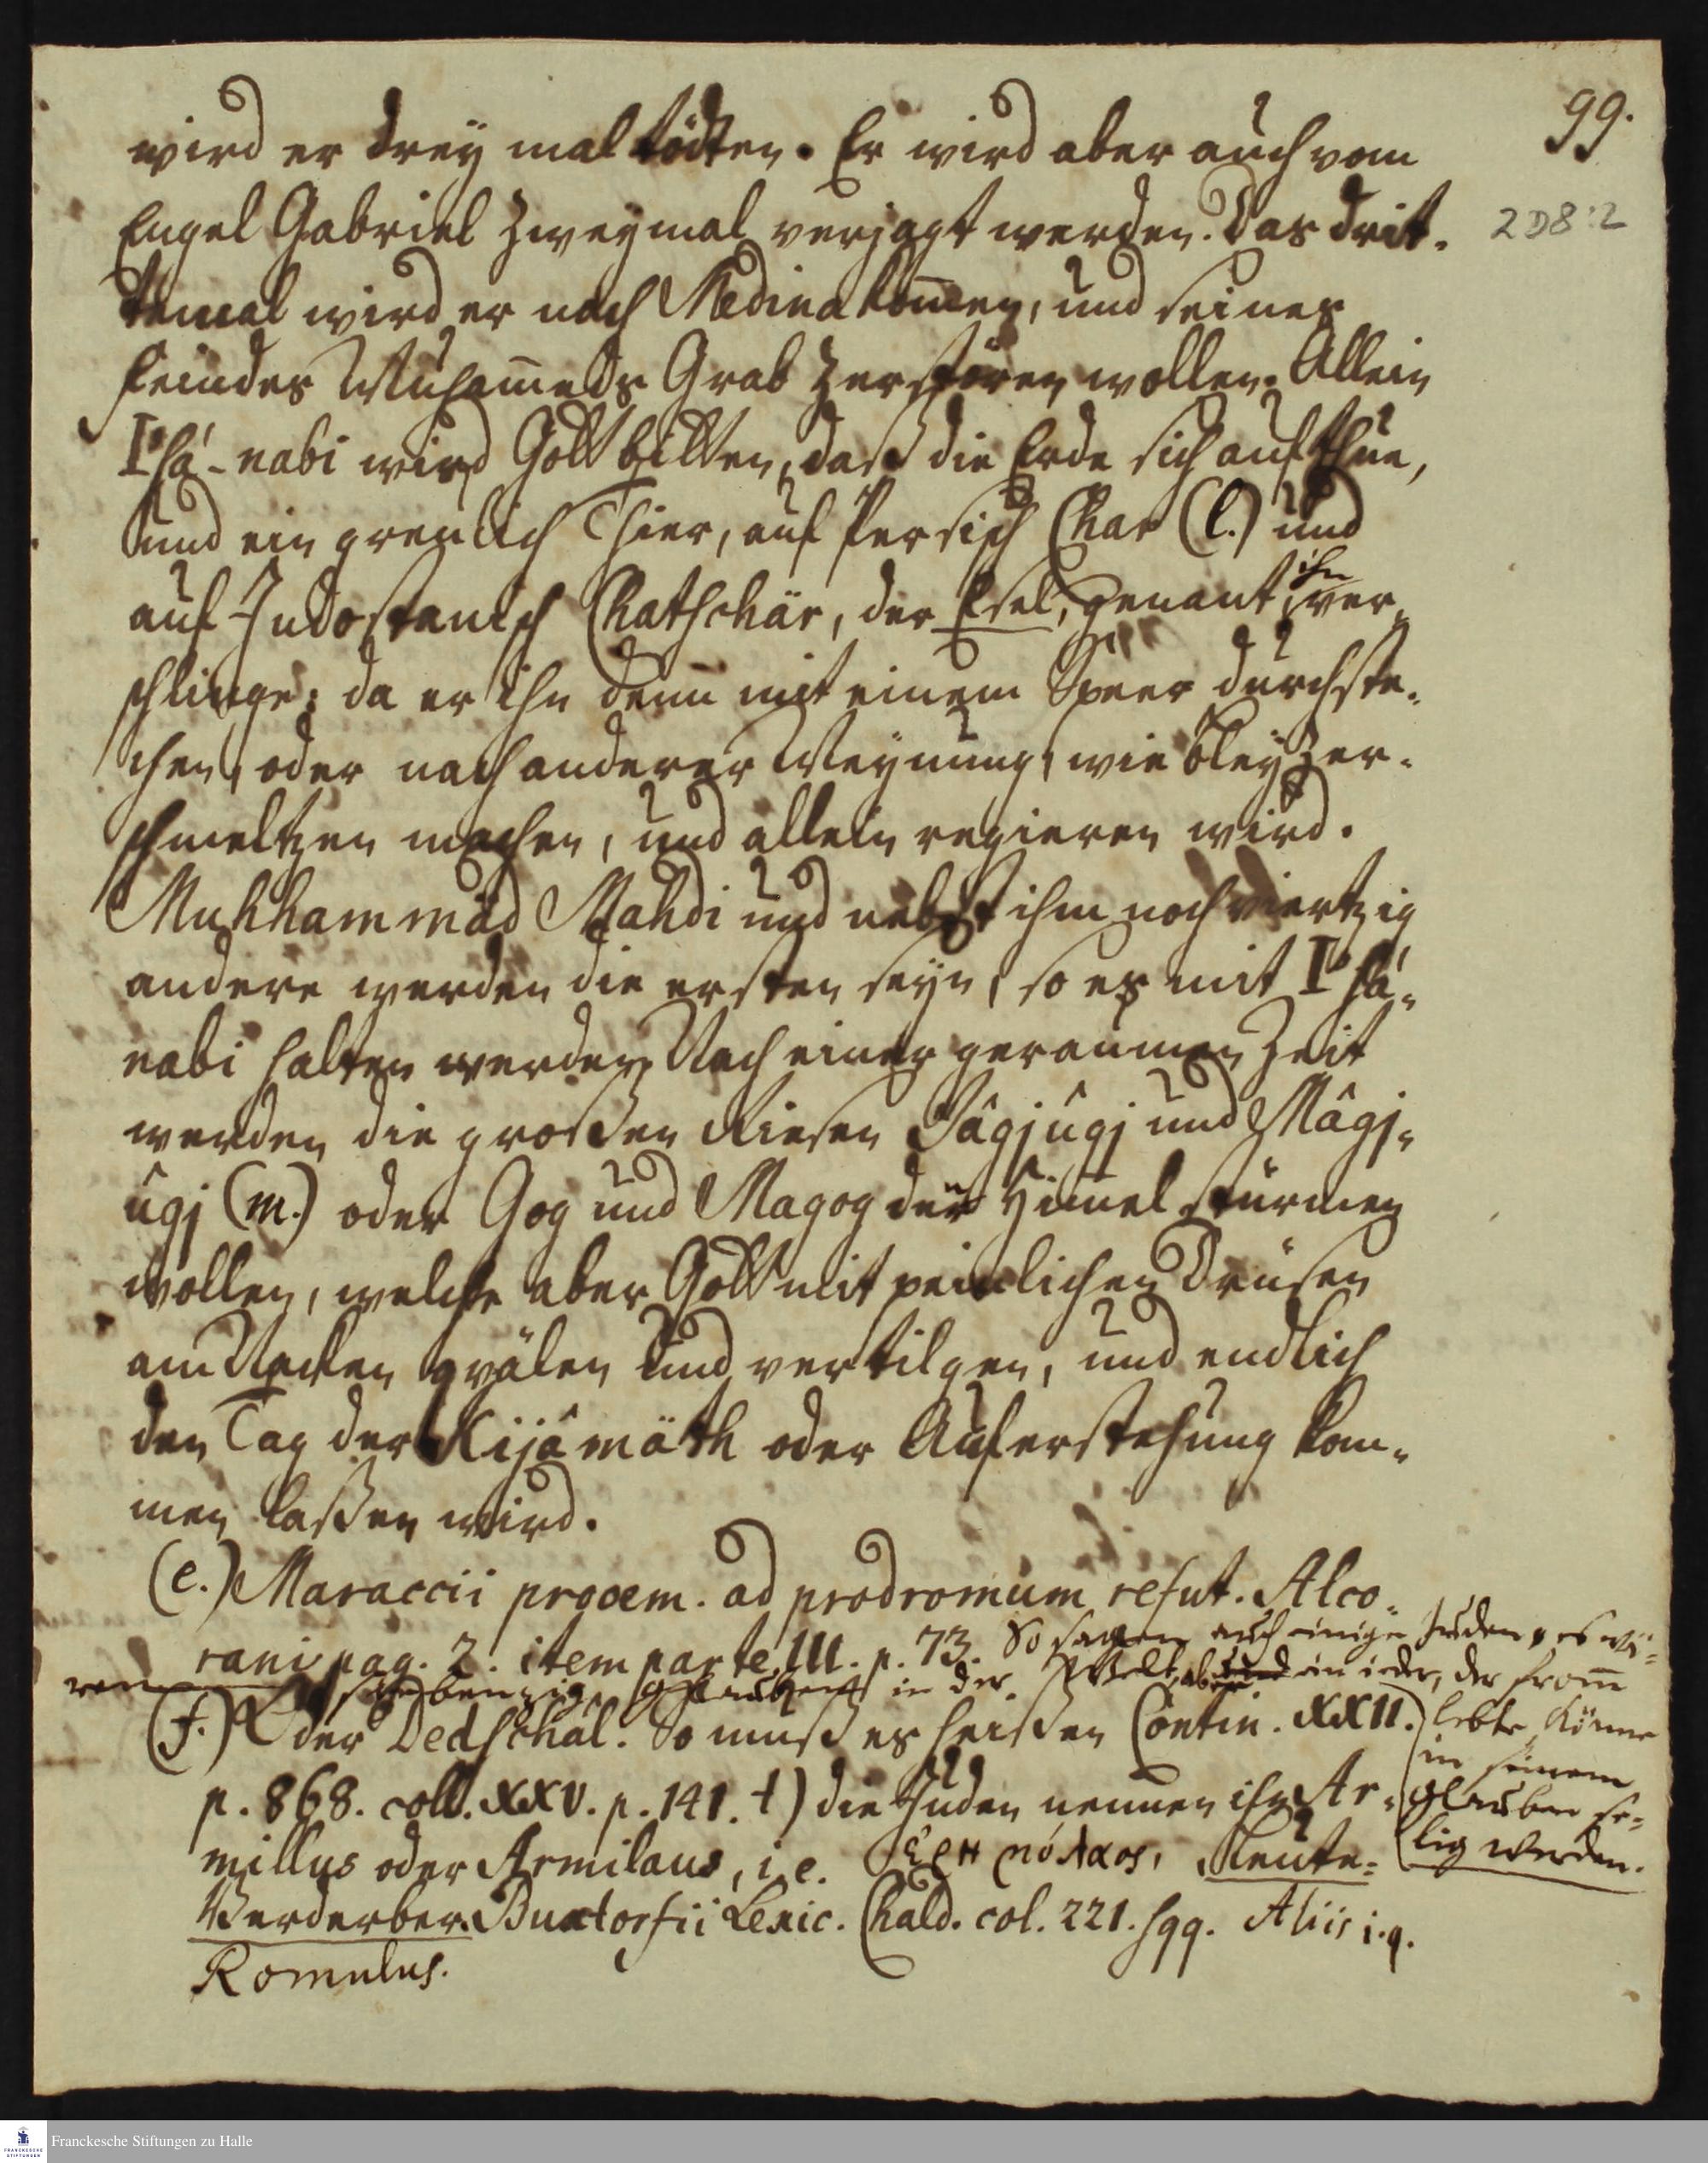 99.
2 D8:2
wird er drey mal tödten. Er wird aber auch vom
Engel Gabriel zweymal verjagt werden. Das drit-
temal wird er nach Medina kom̄en, und seines
Feindes Muham̄eds Grab zerstören wollen. Allein
Isá-nabi wird Gott bitten, daß die Erde sich aufthue,
und ein greulich Thier, auf Persisch Char (l.) und
auf Indostanisch Chatschär, der Esel, genant, ihn ver-
schlinge; da er ihn den̄ mit einem Speer durchste-
chen, oder nach anderer Meynung, wie Bley zer-
schmeltzen machen, und allein regieren wird.
Muhhammäd Mahdi und nebst ihm noch viertzig
andere werden die ersten seyn, so es mit Isá-
nabi halten werden. Nach einer geraumen Zeit
werden die großen Riesen Jâgjûgj und Mâgj-
ûgj (m.) oder Gog und Magog den Him̄el stürmen
wollen, welche aber Gott mit peinlichen Drüsen
am Nacken qvälen und vertilgen, und endlich
den Tag der Kijâmäth oder Auferstehung kom-
men laßen wird.
(e.) Maraccii prooem. ad prodromum refut. Alco-
rani pag. 2. item parte III. p. 73. So sagen auch einige Juden, es wä-
ren siebenzig Glauben in der Welt, aber in ieder, der from̄
lebte, könne
in seinem
glauben se-
lig werden.
(f.) der Dedschâl. So muß es heißen Contin. XXII.
p. 868. coll. XXV. p. 141. †) die Juden nennen ihn Ar-
millus oder Armilaus, i.e. ἐρημόλαος, Leute-
Verderber. Buxtorfii Lexic. Chald. col. 221. sqq. Aliis i.q.
Romulus.
Franckesche Stiftungen zu Halle